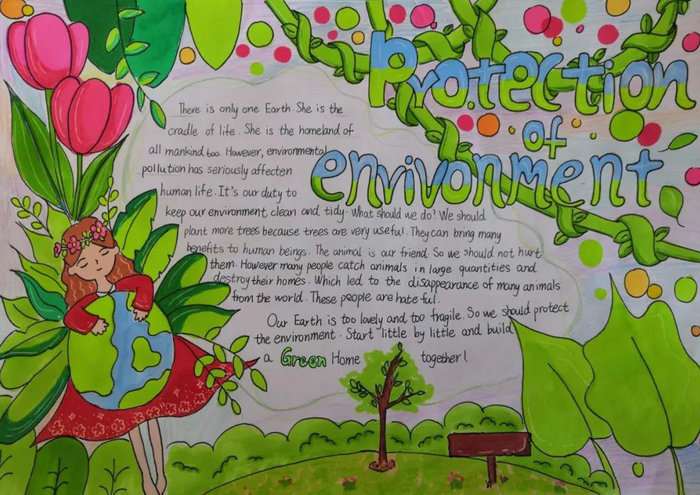 Protection
of
envivonment
There is only one Earth She is the
cradle of life. She is the homeland of
all mankind too. However, environmental
pollution has seriously affecten
human life. It's our duty to
keep our environment clean and tidy. What should we do? We should
plant more trees because trees are very useful. They can bring many
benefits to human beings. The animal is our friend. So we should not hurt
them. However many people catch animals in large quantities and
destroy their homes. Which led to the disappearance of many animals
from the world. These people are hateful.
Our Earth is too lovely and too fragile. So we should protect
the environment. Start little by little and build
a Green Home together!